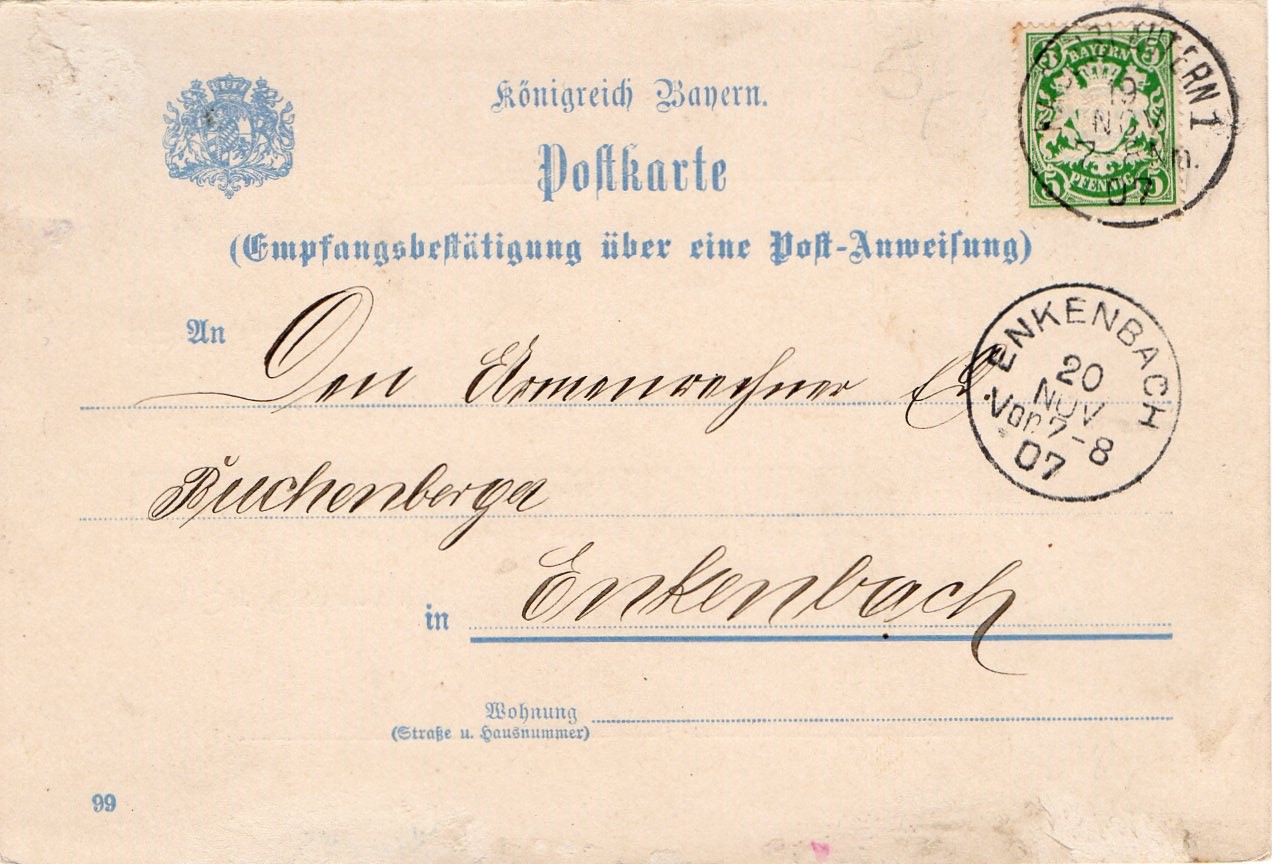 Königreich Bayern.
Postkarte
(Empfangsbestätigung über eine Post-Anweisung)
5 BAYERN 5
5 PFENNIG 5
19
NOV
7-8 Nm.
07
An Den Armenrechner
ENKENBACH
20
NOV
Vor. 7-8
07
Buchenberger
in Enkenbach
Wohnung
(Straße u. Hausnummer)
99